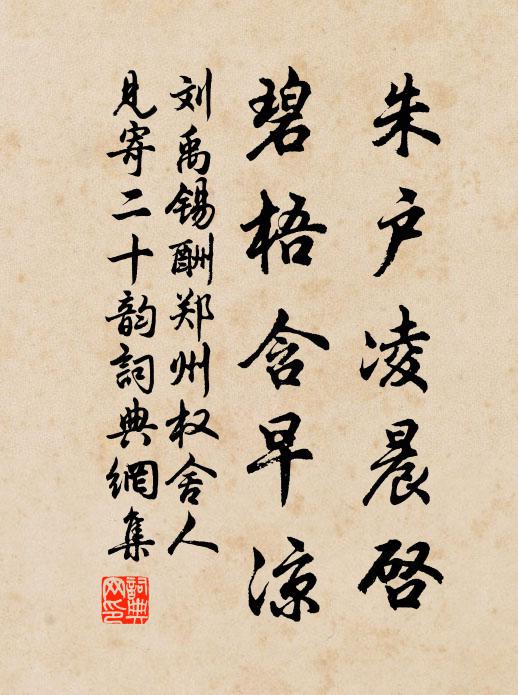 朱户凌晨启
碧梧含早凉
刘禹锡酬郑州权舍人
见寄二十韵詞典網集
詞典网印